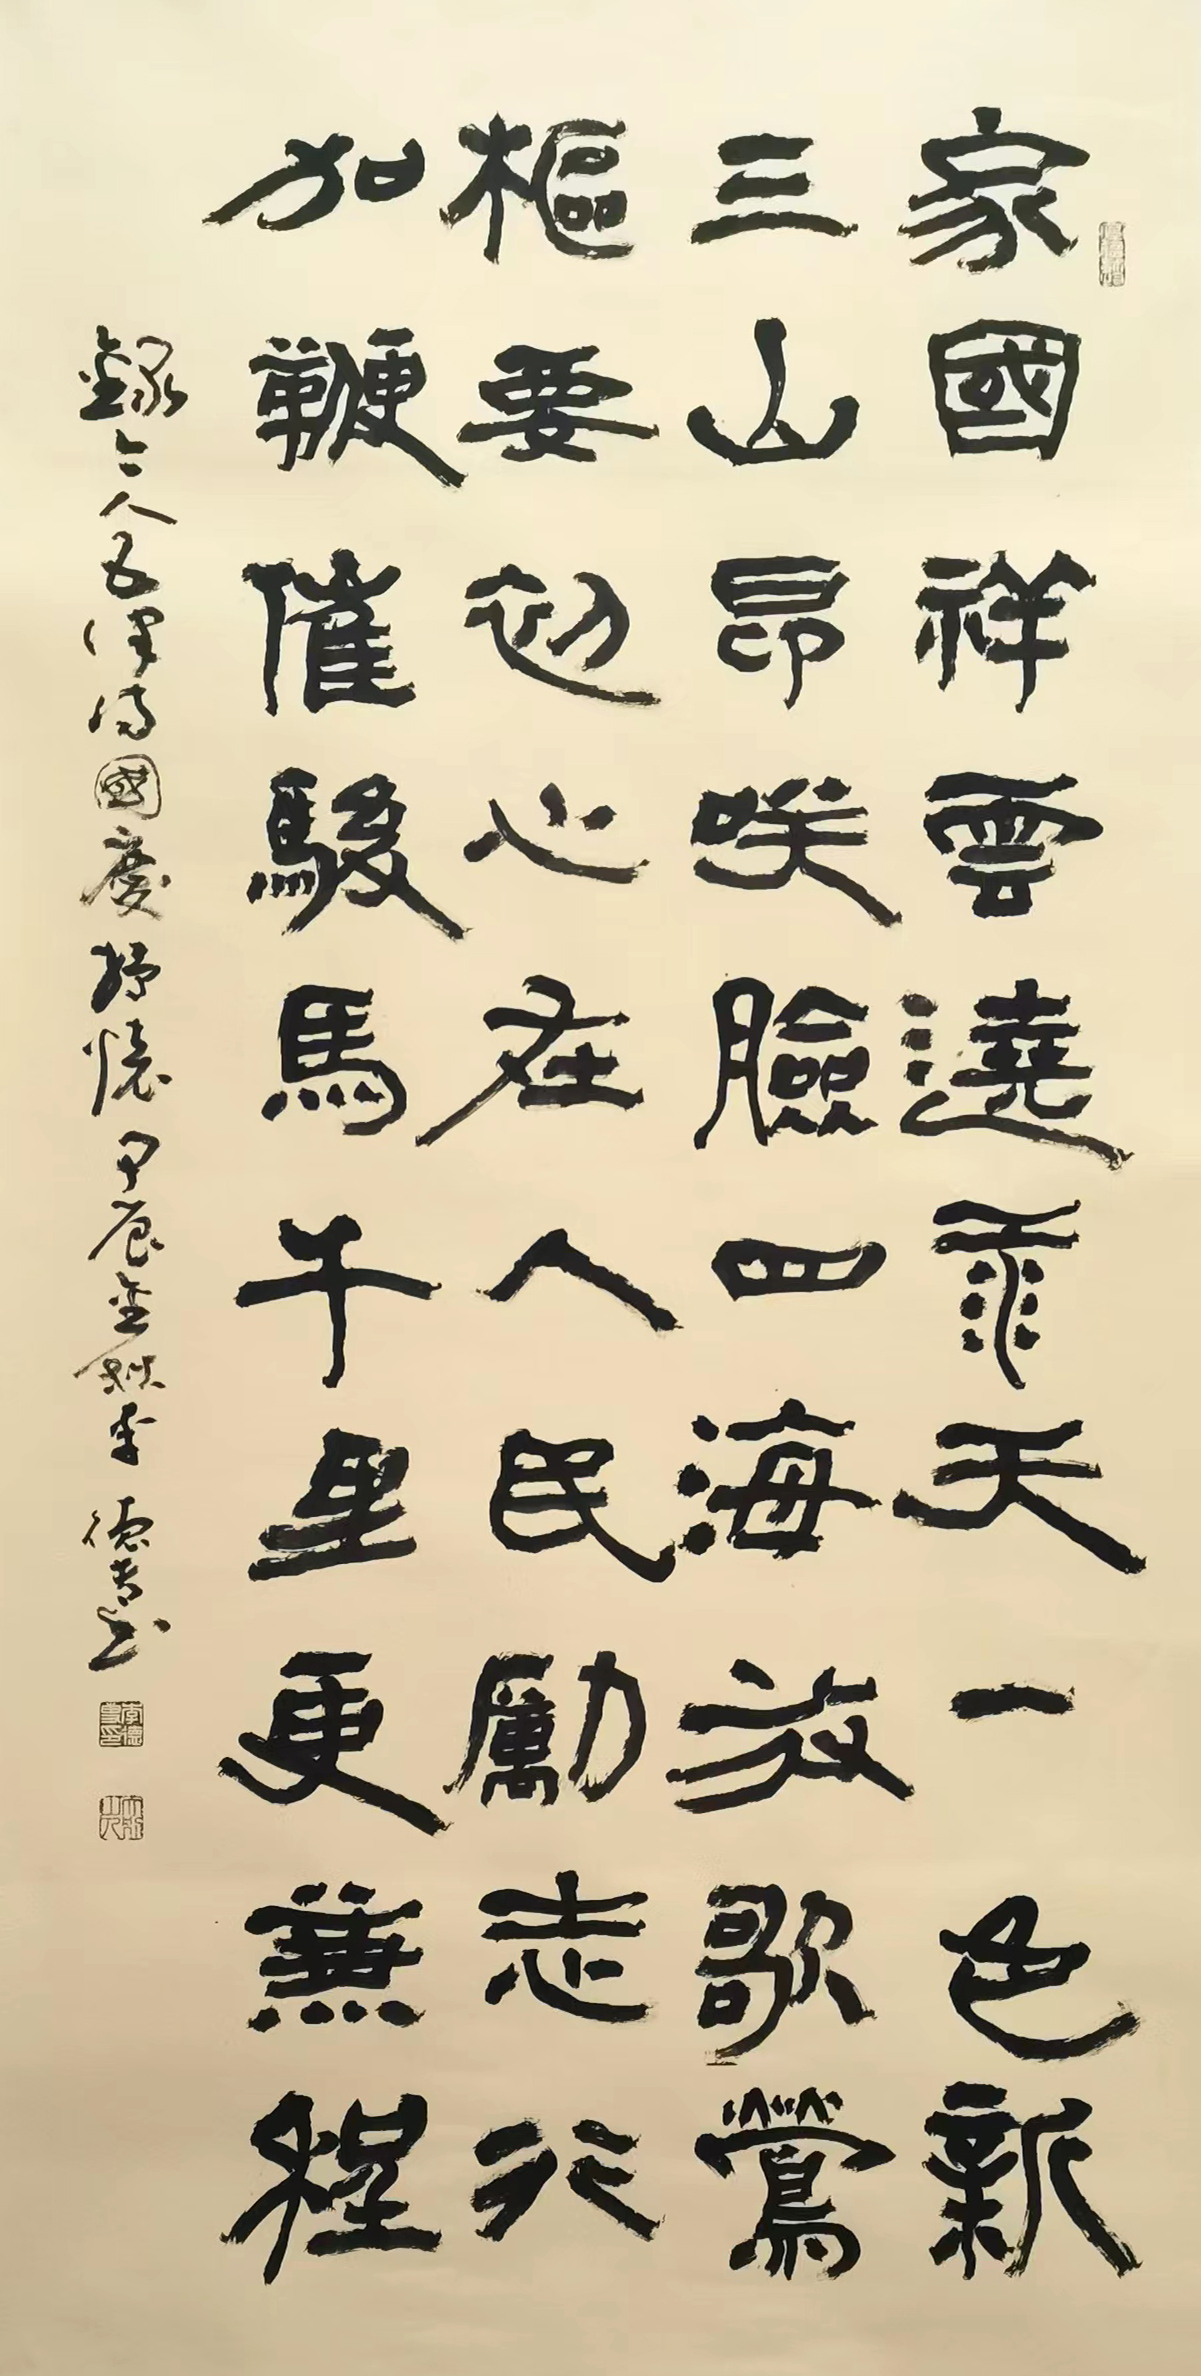 家國祥雲遶天一色新
三山昂咲臉四海放歌鶯
樞要初心在人民勵志行
加鞭催駿馬千里更兼程
錄今人五律詩國慶抒懷甲辰金秋李德書